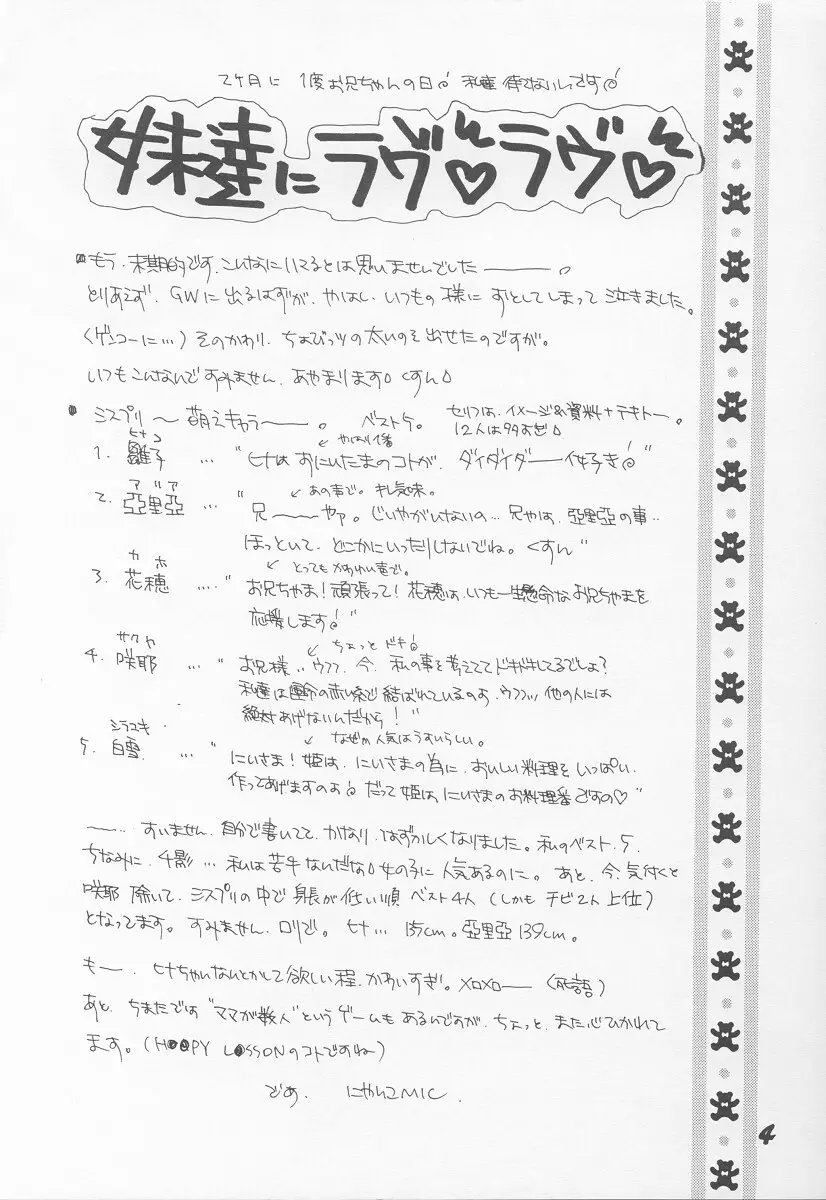 2ヶ月に 1度お兄ちゃんの日 私達 待てないしです
妹達にラヴ♡ラヴ♡
もう、末期的です。こんなにハマるとは思いませんでした———。
とりあえず、GWに出るはずが、やはし、いつもの様に おとしてしまって 泣きました。
(ゲンコーに…) そのかわり、ちょびっツの太いのを出せたのですが。
いつもこんなんですみません。あやまります。くすん。
シスプリ 〜 萌えキャラ——。 ベスト5。 セリフは、イメージ&資料+テキトー。
12人は多すぎ。
やはり1番
1. 雛子 ヒナコ … "ヒナは おにいたまのコトが、ダイダイダー—イ好き"
あの声で。キレ気味。
2. 亞里亞 アリア … " 兄———やァ。じいやがいけないの… 兄やは、亞里亞の事‥
ほっといて、どこかにいったりしないでね。くすん"
とってもかわいい声で。
3. 花穂 カホ …. " お兄ちゃま!頑張って!花穂は、いつも一生懸命なお兄ちゃまを
応援します"
ちょっと ドキ
4. 咲耶 サクヤ … " お兄様‥ウフフ、今、私の事を考えててドキドキしてるでしょ?
私達は運命の赤い糸で結ばれているのよ、ウフフッ 他の人には
絶対あげないんだから!"
なぜか人気はうすいらしい。
5. 白雪 シラユキ … " にいさま!姫は、にいさまの為に、おいしい料理を いっぱい、
作ってあげますのよ だって姫は、にいさまのお料理番ですの♡"
——‥ すいません、自分で書いてて、かなり、はずかしくなりました。私のベスト、5。
ちなみに、千影… 私は苦手なんだな。女の子に人気あるのに。あと、今、気付くと
咲耶 除いて、シスプリの中で 身長が低い順 ベスト4人 (しかも チビ2人 上位)
となってます。すみません、ロリで。ヒナ… 135cm。亞里亞 139cm。
もー、ヒナちゃんないとかして欲しい程、かわいすぎ。メロメロ—— (死語)
あと、ちまたでは "ママが数人" というゲームも あるんですが、ちょっと、また心ひかれて
ます。(H●●PY L●SSONのコトですね)
であ。 にゃんこMIC.
4